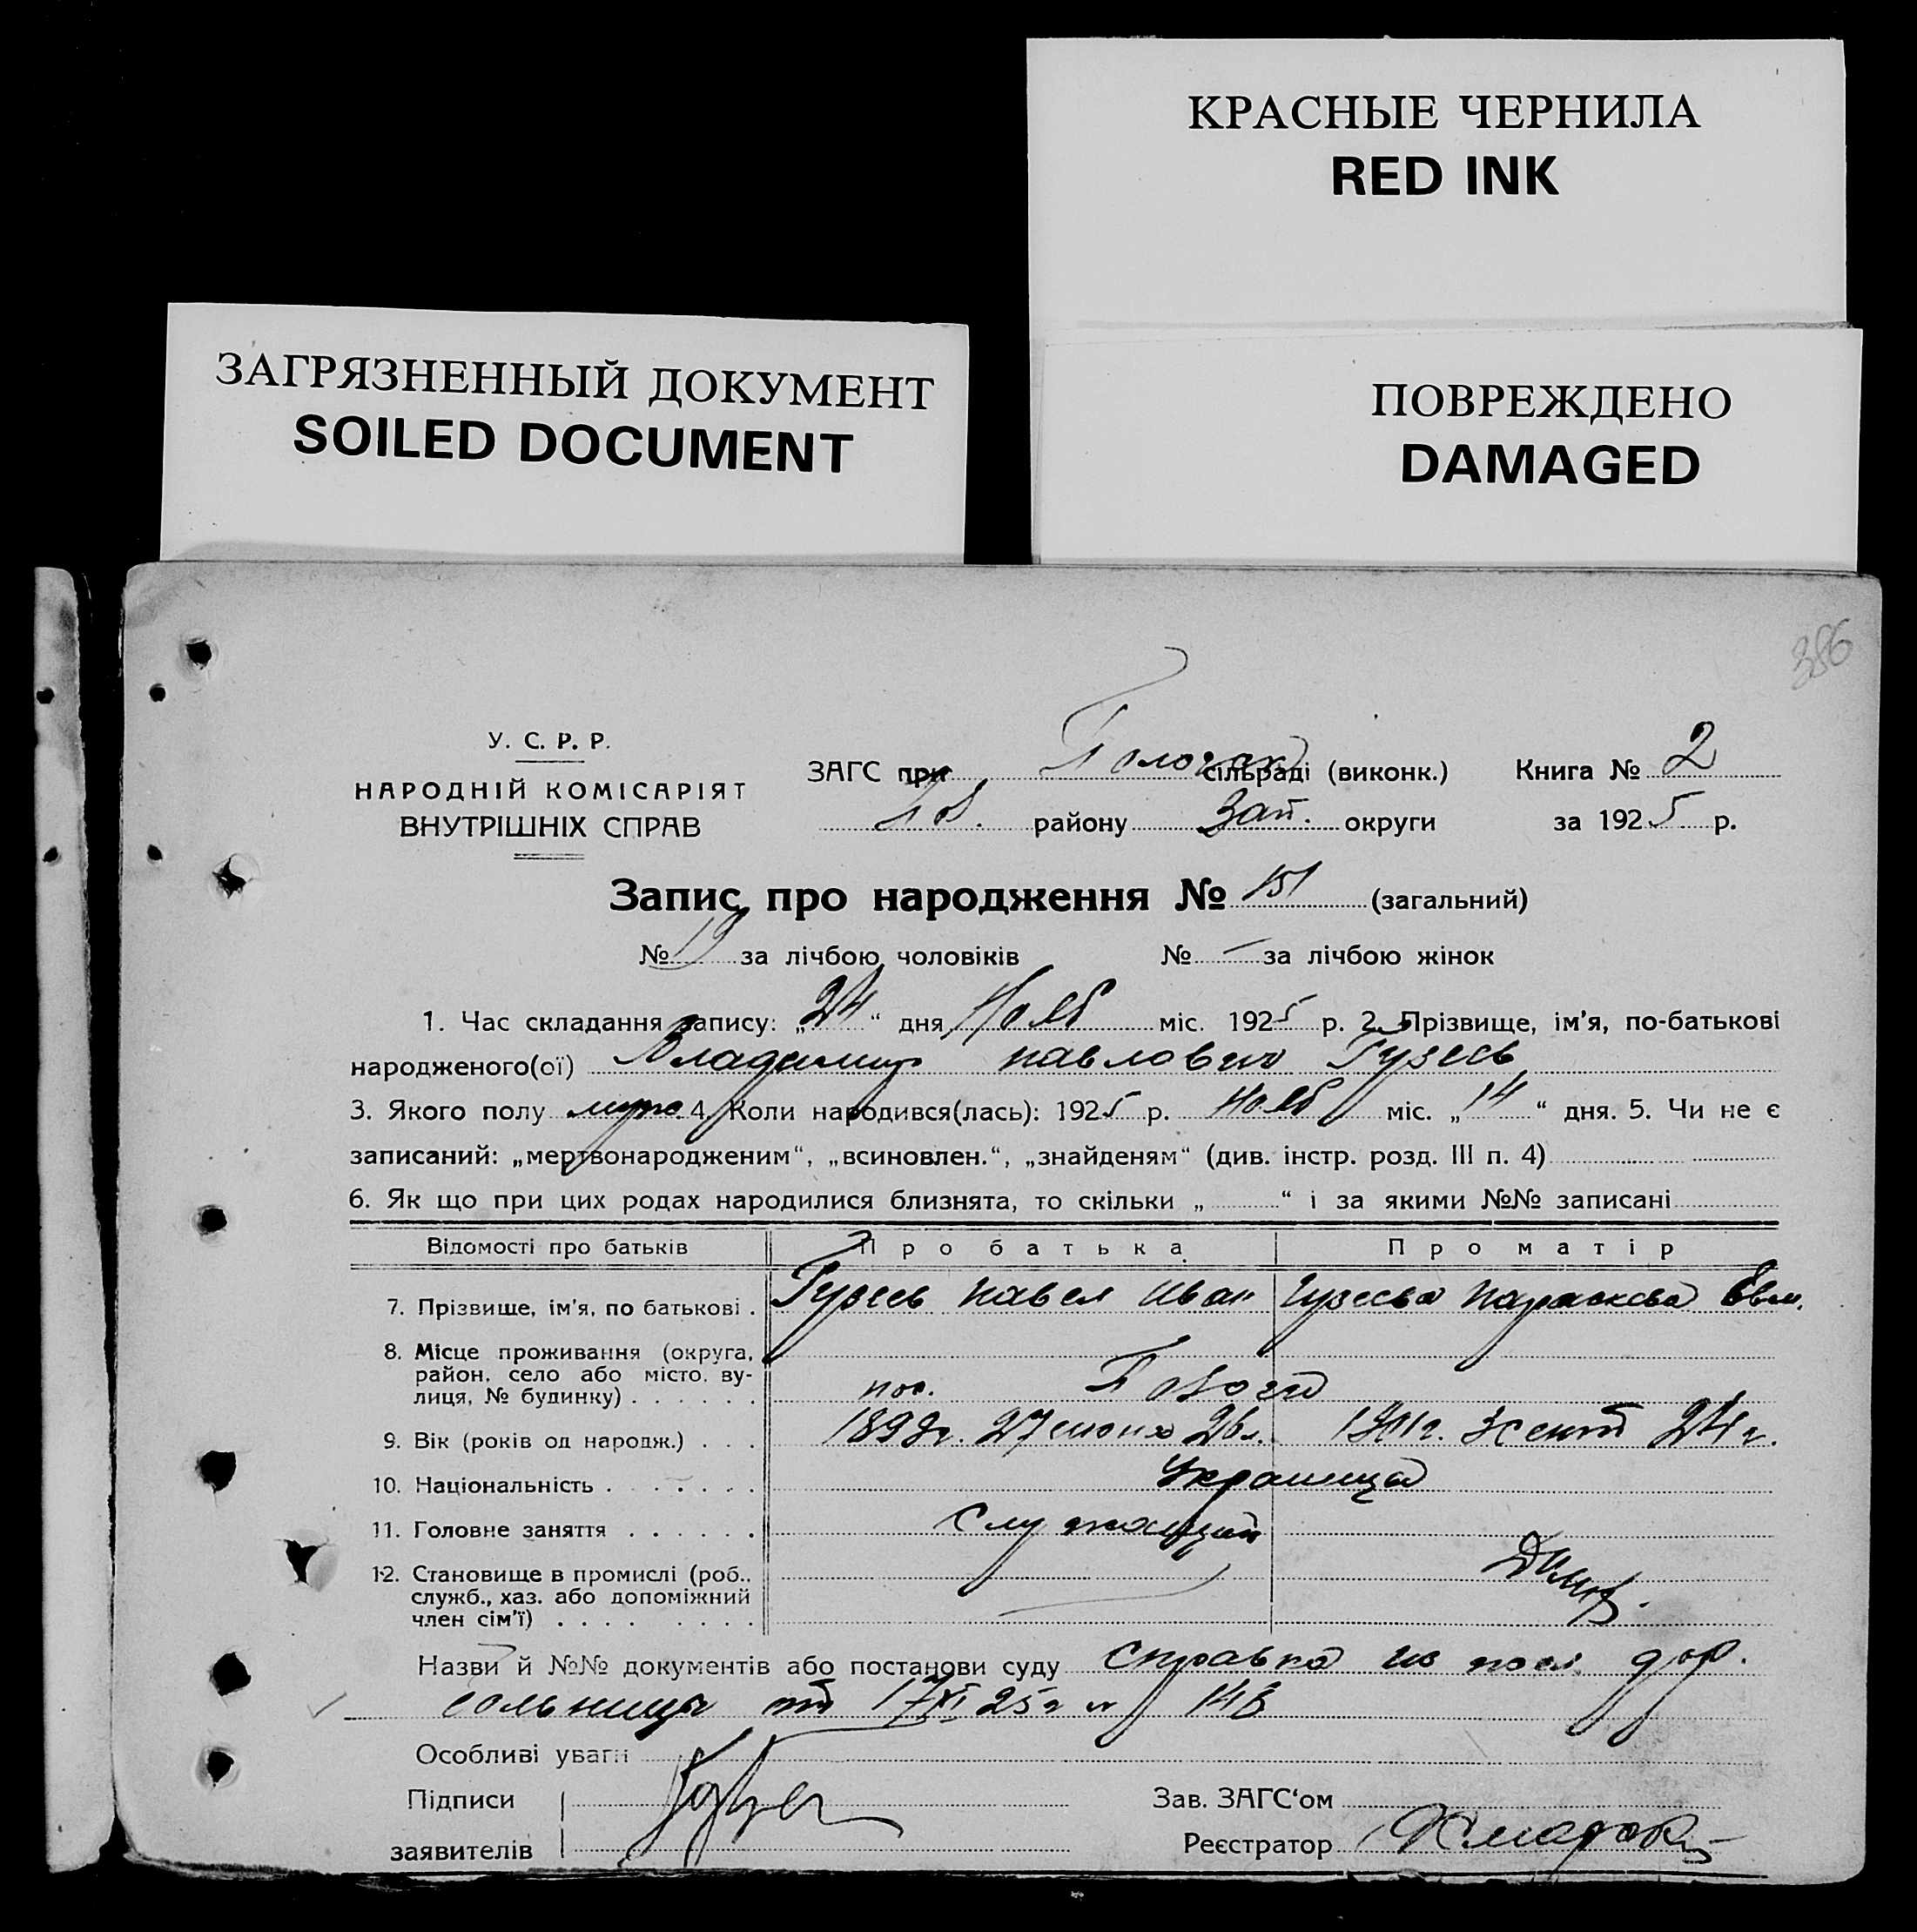 КРАСНЫЕ ЧЕРНИЛА
RED INK
ЗАГРЯЗНЕННЫЙ ДОКУМЕНТ
SOILED DOCUMENT
ПОВРЕЖДЕНО
DAMAGED
386
У. С. Р. Р.
НАРОДНІЙ КОМІСАРІЯТ
ВНУТРІШНІХ СПРАВ
ЗАГС при сільраді (виконк.) Книга № 2
району Зап. округи за 1925 р.
Запис про народження № 151 (загальний)
№ 19 за лічбою чоловіків № — за лічбою жінок
1. Час складання запису: „24“ дня Нояб міс. 1925 р. 2. Прізвище, ім'я, по-батькові
народженого(ої) Владимир Павлович Гузеев
3. Якого полу муж 4. Коли народився(лась): 1925 р. Нояб міс. „14“ дня. 5. Чи не є
записаний: „мертвонародженим“, „всиновлен.“, „знайденям“ (див. інстр. розд. III п. 4)
6. Як що при цих родах народилися близнята, то скільки „ “ і за якими №№ записані
Відомості про батьків Про батька Про матір
7. Прізвише, ім'я, по батькові . Гузеев Павел Иван Гузеева Параскева Евм.
8. Місце проживання (округа,
район, село або місто, ву-
лиця, № будинку) . . . . . . пос.
9. Вік (років од народж.) . . . 27 июня 26 л. 1901г. 3 сент 24 г.
10. Національність . . . . . . Украинца
11. Головне заняття . . . . . . Служащий
12. Становище в промислі (роб.,
служб., хаз. або допоміжний
член сім'ї) . . . . . . . . Домх.
Назви й №№ документів або постанови суду Справка из пол. дор.
больницы от 17/XI 25 г №
Особливі уваги
Підписи
заявителів
Зав. ЗАГС'ом
Реєстратор